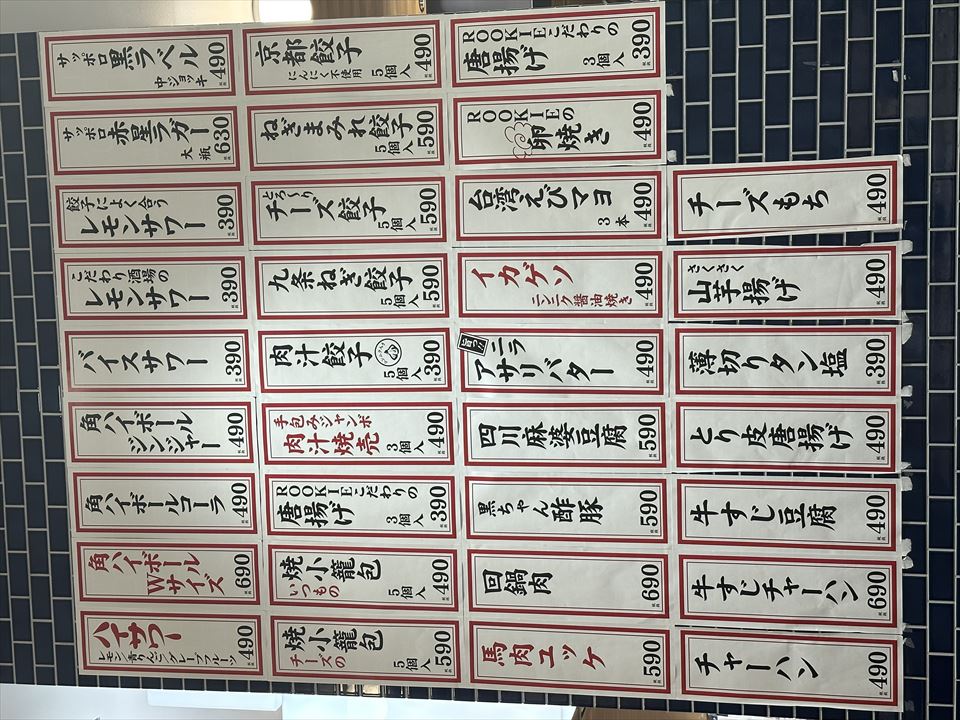 サッポロ
黒ラベル
中ジョッキ
490
サッポロ
赤星ラガー
大瓶
630
餃子によく合う
レモンサワー
390
こだわり酒場の
レモンサワー
390
バイスサワー
390
角ハイボール
ジンジャー
490
角ハイボールコーラ
490
角ハイボール
Wサイズ
690
ハイサワー
レモン 青りんご グレープフルーツ
490
京都餃子
にんにく不使用
5個入
490
ねぎまみれ餃子
5個入
590
とろ〜り
チーズ餃子
5個入
590
九条ねぎ餃子
5個入
590
肉汁餃子
5個入
390
手包みジャンボ
肉汁焼売
3個入
490
ROOKIEこだわりの
唐揚げ
3個入
390
焼小籠包
いつもの
5個入
490
焼小籠包
チーズの
5個入
590
ROOKIEこだわりの
唐揚げ
3個入
390
ROOKIEの
卵焼き
490
台湾えびマヨ
3本
490
イカゲソ
ニンニク醤油焼き
490
旨っ!!
ニラ
アサリバター
490
四川麻婆豆腐
590
黒ちゃん
酢豚
590
回鍋肉
690
馬肉ユッケ
590
チーズもち
490
さくさく
山芋揚げ
490
薄切りタン塩
390
とり皮唐揚げ
490
牛すじ豆腐
490
牛すじチャーハン
690
チャーハン
490